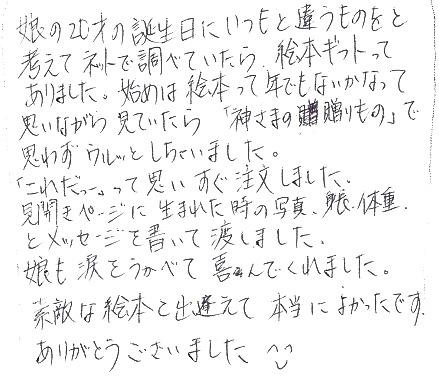 娘の20才の誕生日にいつもと違うものをと
考えてネットで調べていたら、絵本ギフトって
ありました。始めは絵本って年でもないかなって
思いながら見ていたら「神さまの贈りもの」で
思わずウルッとしちゃいました。
「これだっー」って思いすぐ注文しました。
見開きページに生まれた時の写真、身長・体重、
とメッセージを書いて渡しました。
娘も涙をうかべて喜んでくれました。
素敵な絵本と出逢えて本当によかったです。
ありがとうございました